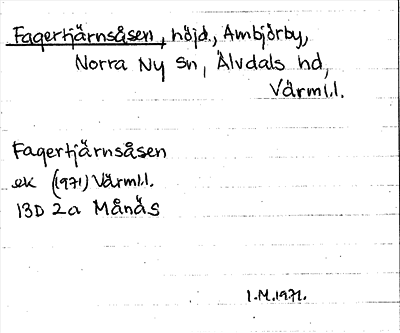 Fagertjärnsåsen, höjd., Ambjörby,
Norra Ny sn, Älvdals hd,
Värml.l.
Fagertjärnsåsen
ek (1971) Värml.l.
13D 2a Månäs
I.M.1971.